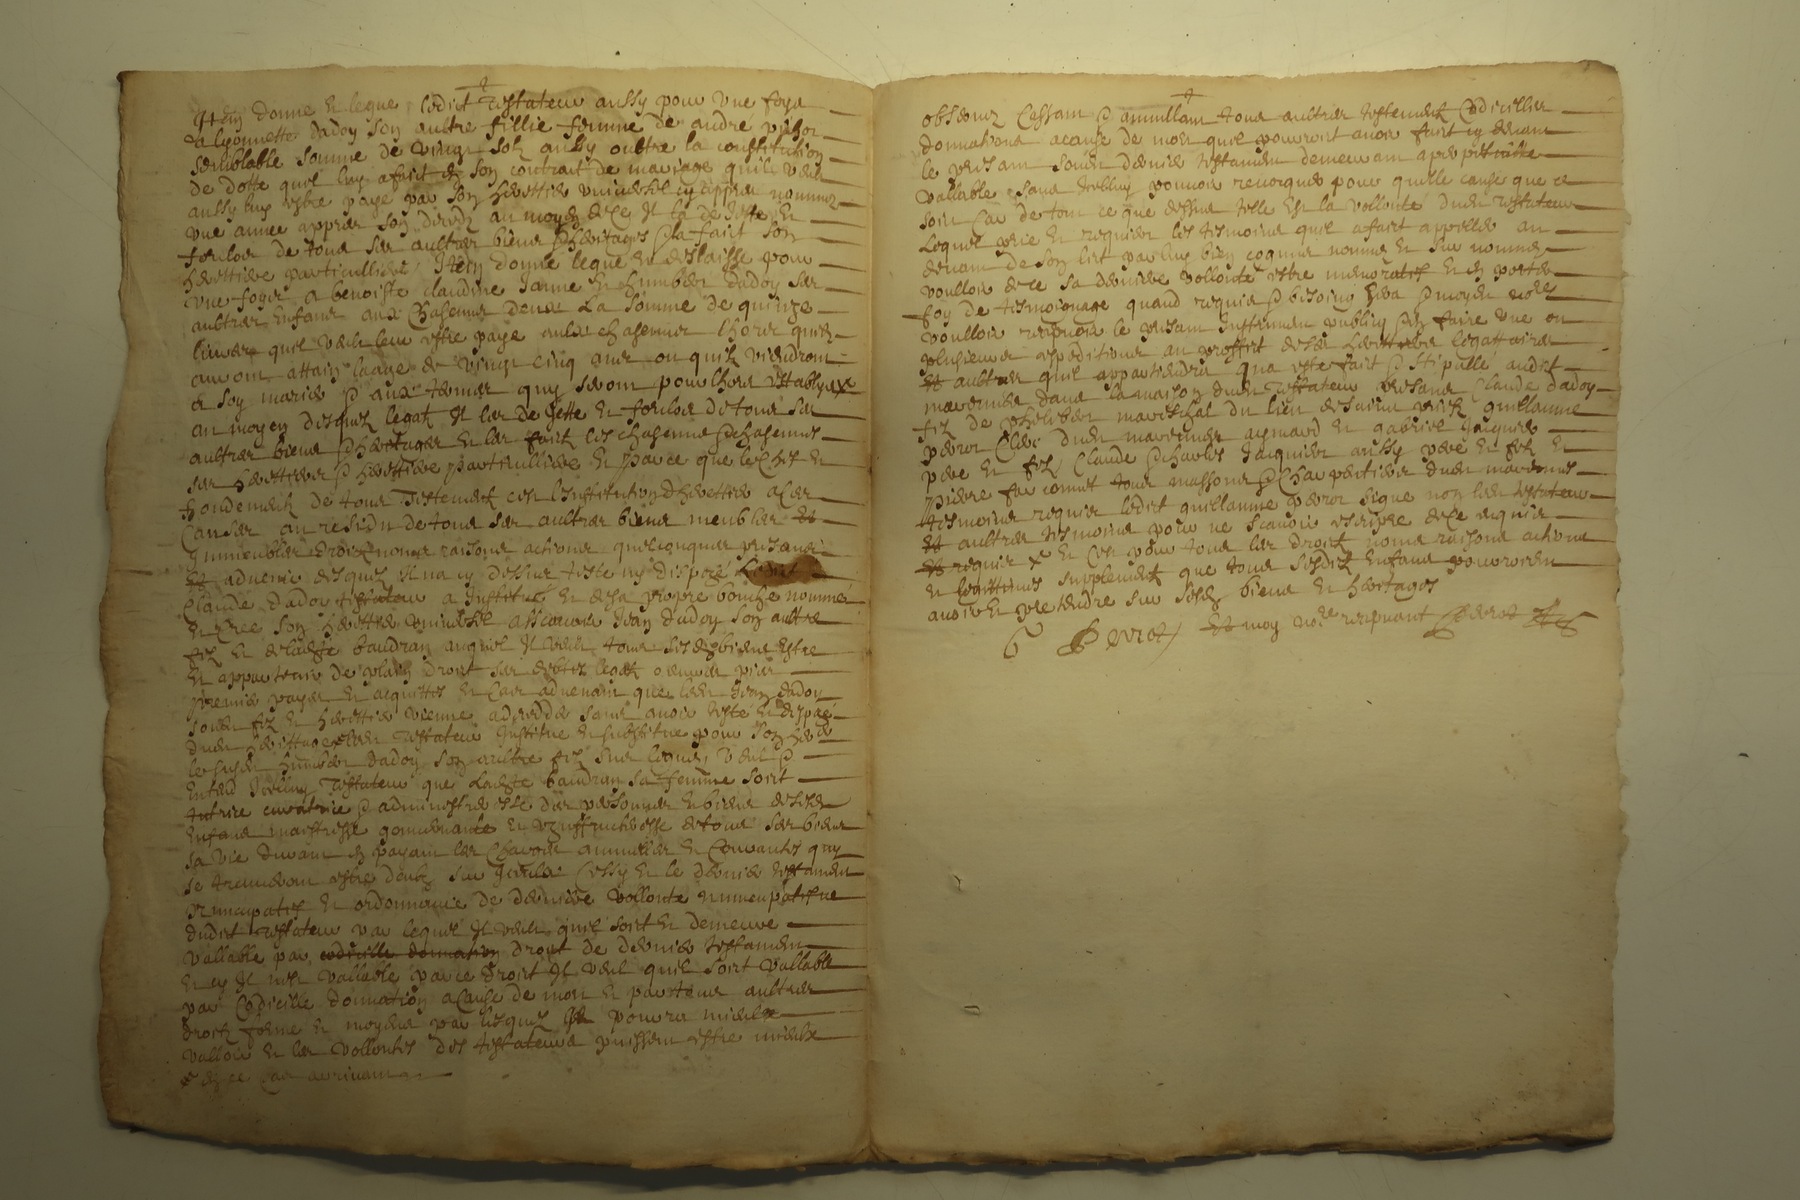 Item donne et legue ledict testateur aussy pour une foys
a lyonnette dadoy son aultre fillie femme de andre
semblable somme de vingt solz aussy oultre la constitution
de dotte quil luy a faict en son contrait de mariage quil veult
aussy luy estre paye par son heretier universel cy appres nomme
une annee appres son deces au moyen de ce Il la de Jette et
forclos de tous ses aultres biens et heritages et la faict son
heretiere particulliere Item donne legue et deslaisse pour
une foys a benoiste claudine Janne et humbert dadoy ses
aultres enfans aux chascung deux la somme de quinze
livres quil veult leur estre paye aulx chascungs lhors quilz
auront attain laage de vingt cinq ans ou quilz viendront
a soy marier et aux termes quy seront pour lhors establys
au moyen desquelz legatz Il les de Jette et forclos de tous ses
aultres biens et heritages et les faict les chascung et chascunes
ses heretiers et heretiere particulliere Et parce que le chef et
fondement de tous Testementz est linstitution dheretier a ceste
cause au residu de tous ses aultres biens meubles Et
Immeubles droictz noms raisons actions quelconques presans
Et advenir desquelz Il na cy dessus teste ny dispoze Ledict
Claude dadoy testateur a Institue et de sa propre bouche nomme
et cree son heretier universel asscavoir Jean dadoy son aultre
filz et de ladicte baudran auquel Il veult tous sesdicts biens estre
et appartenir de plain droict ses debtz legatz œuvres pies
premier payes et acquittes et cas advenant que ledict Jean dadoy
sondict filz et heretier vienne a deceder sans avoir teste et dispoze
dudict heritage ledict testateur Institue et substitue pour son heretier
humbert dadoy son aultre filz veult et
entend Icelluy Testateur que ladicte baudran sa femme soict
tutrise curatrice et administreresse des personnes et biens de sesdicts
enfans maistresse gouvernante et uzuffructueresse de tous ses biens
sa vie durant en payant les charges annuelles et courantes quy
se treuveront estre deubz sur Iceulx Cessy est le dernier testament
nuncupatif et ordonnance de derniere vollonte nuncupatisve
dudict testateur par lequel Il veult quil soict et demeure
vallable par codicille donnation droict de dernier testament
et sy Il nest vallable par ce droict Il veult quil soict vallable
par codicille donnation a cause de mort et par tous aultres
droictz forme et moyens par lesquelz Il pourra mieulx
valloir et les vollontes des testateurs puissent estre mieulx
en ce cas arrivant
observez Cessant et annullant tous aultres testementz codicilles
donnations a cause de mort quil pourroit avoir faict cy devant
le presant sondict dernier testament demeurant
vallable sans Icelluy pouvoir revocquer pour quelle cause que ce
soit Car de tout ce que dessus telle est la vollonte dudict testateur
Lequel prie et requier les tesmoins quil a faict appeller au
devant de son lict par luy bien cogneus nommes et sur nommes
voulloir de ce sa derniere vollonte estre memoratifz et en porter
foy de tesmoignage quand requis et besoing sera et moy notaire
voulloir recepvoir le presant Instrument public et en faire une ou
plusieurs expeditions au proffict de ses heretiers legattaires
Et aultres quil appartiendra qua este faict et stipulle audict
dans la maison dudict testateur presans Claude dadoy
filz de philibert mareschal du lieu de
guillaume perrot clerc dudict aymard et gabriel Jacquier
pere et filz Claude et charles Jacquier aussy pere et filz et
pierre tous massons et charpentiers dudict
tesmoins requis ledict guillaume perrot signe non ledict testateur
Et aultres tesmoins pour ne scavoir escripre de ce enquis
Et requis x et ce pour tous les droictz noms raisons actions
et legittimes supplementz que tous sesdicts enfans pourroient
avoir et pretendre sur sesdicts biens et heritages
G Perrot Et moy notaire recepvant Perrot